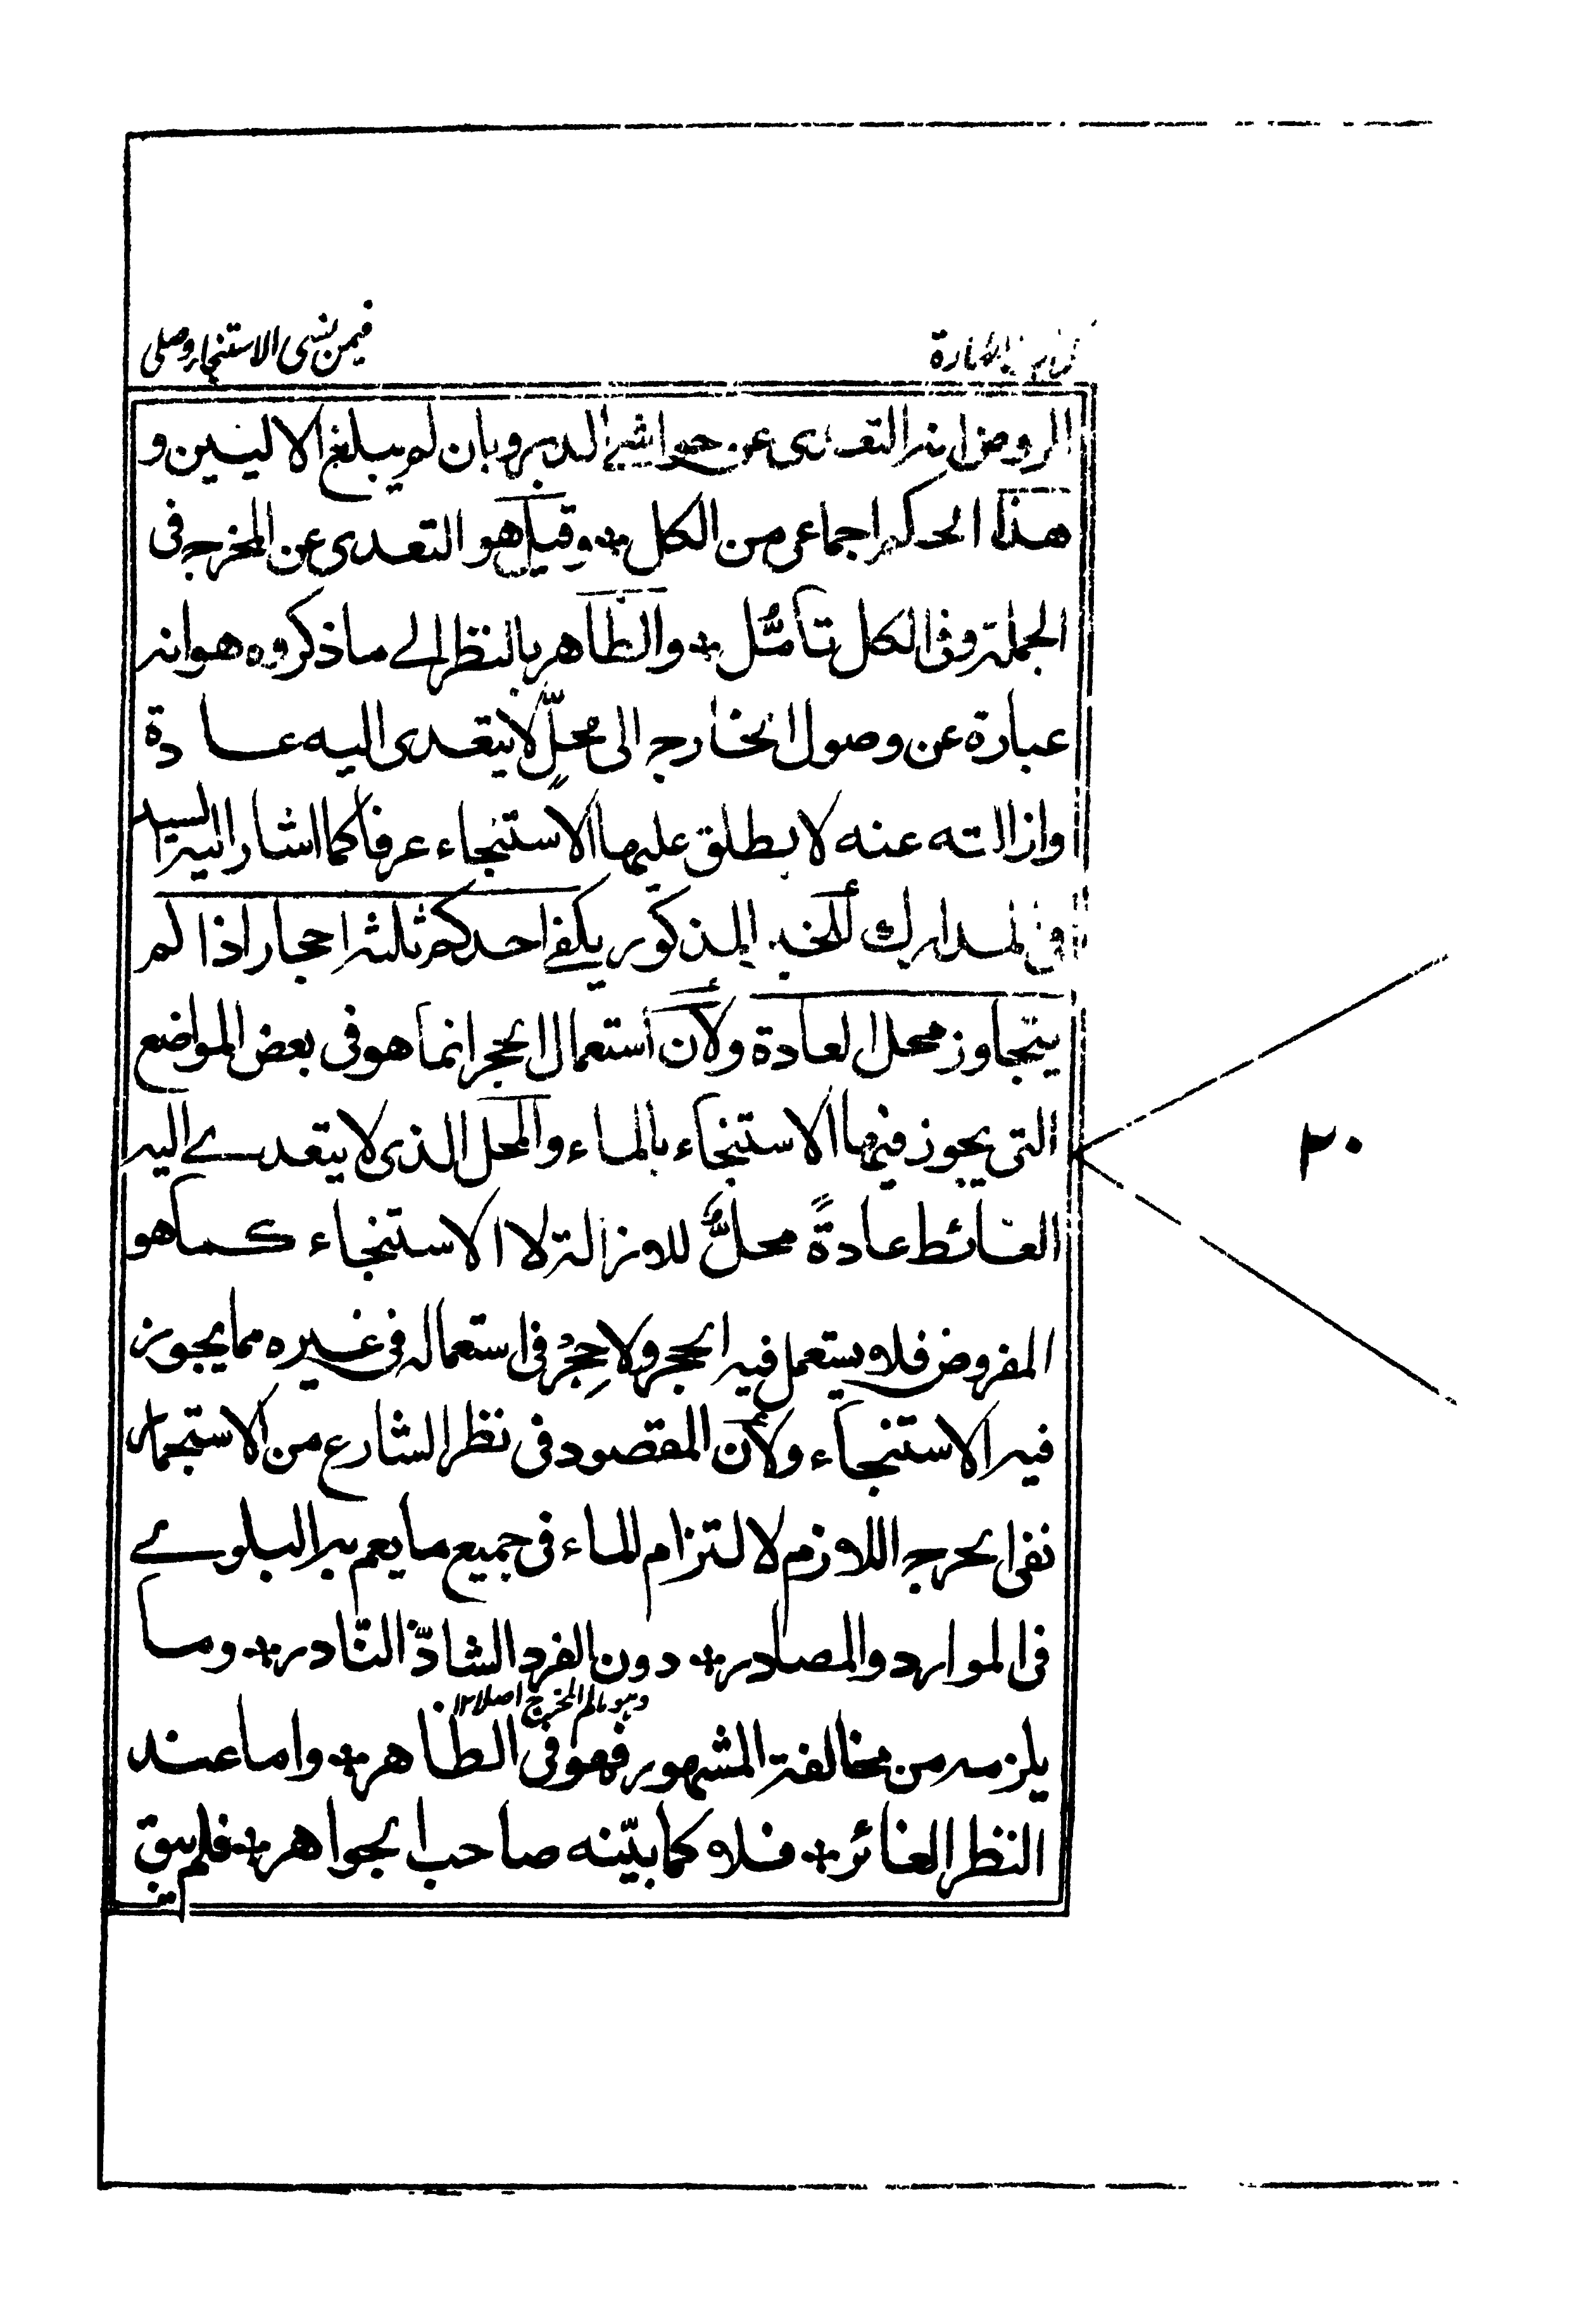 كتاب الطهارة
فيمن نسى الاستنجاء وصلى
الروض انه التعدى عن حواشى الدبر وبان لم يبلغ الاليين و
هذا الحكم اجماعى من الكل وقيل هو التعدى عن المخرج فى
الجملة وفى الكل تأمّل والظاهر بالنظر الى ماذكروه هو انه
عبارة عن وصول الخارج الى محلٍّ لا يتعدى اليه عادة
وازالته عنه لا يطلق عليها الاستنجاء عرفا كما اشار اليه السيد
فى المدارك للخبر المذكور يكفى احدكم ثلثة احجار اذا لم
يتجاوز محل العادة ولأن استعمال الحجر انما هو فى بعض المواضع
التى يجوز فيها الاستنجاء بالماء والمحل الذى لا يتعدى اليه
الغائط عادةً محلٌّ للازالة لا الاستنجاء كما هو
المفروض فلا يستعمل فيه الحجر ولا حِجْر فى استعماله فى غيره مما يجوز
فيه الاستنجاء ولأن المقصود فى نظر الشارع من الاستجمار
نفى الحرج اللازم لالتزام الماء فى جميع ما يعم به البلوى
فى الموارد والمصادر دون الفرد الشاذّ النّادر وما
يلزمه من مخالفة المشهور فهو فى الظاهر واما عند
النظر الغائر فلا كما بيّنه صاحب الجواهر فلم يبق
٣٠